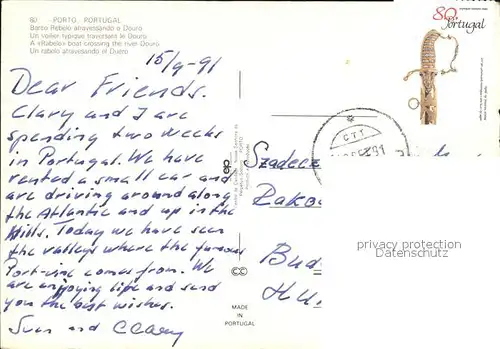 80 PORTO PORTUGAL
Barco Rebelo atravessando o Douro
Un voilier typique traversant le Douro
A «Rabelo» boat crossing the river Douro
Un rabelo atravesando el Duero
15/9-91
Dear Friends.
Clary and I are
spending two weeks
in Portugal. We have
rented a small car and
are driving around along
the Atlantic and up in the
Hills. Today we have seen
the valleys where the famous
Port-wine comes from. We
are enjoying life and send
you the best wishes.
Sven and Clary
MADE
IN
PORTUGAL
80
Portugal
CTT
Szadecz
Rako
Bud
Hu
privacy protection
Datenschutz